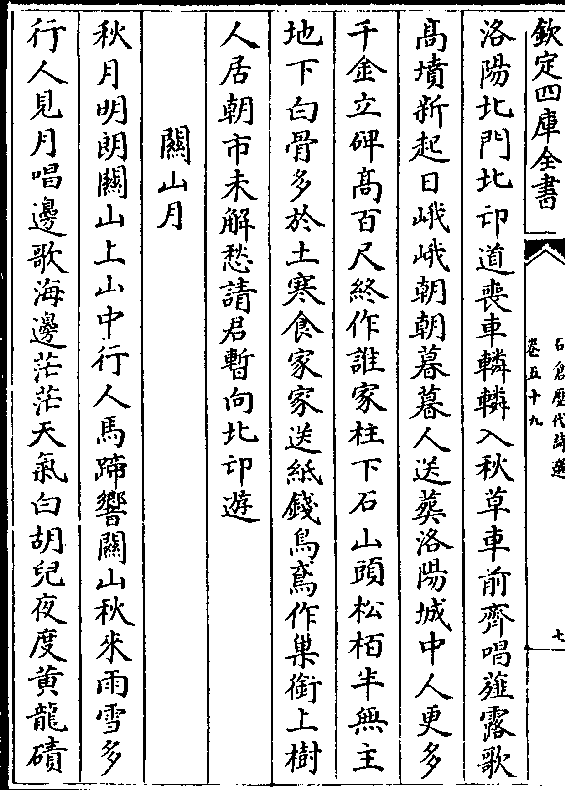 欽定四庫全書
石倉歷代詩選
卷五十九
七
洛陽北門北卬道喪車轔轔入秋草車前齊唱薤露歌
高墳新起日峨峨朝朝暮暮人送葬洛陽城中人更多
千金立碑高百尺終作誰家柱下石山頭松栢半無主
地下白骨多於土寒食家家送紙錢鳥鳶作巢銜上樹
人居朝市未解愁請君暫向北卬遊
關山月
秋月明朗關山上山中行人馬蹄響關山秋來雨雪多
行人見月唱邊歌海邊茫茫天氣白胡兒夜度黄龍磧